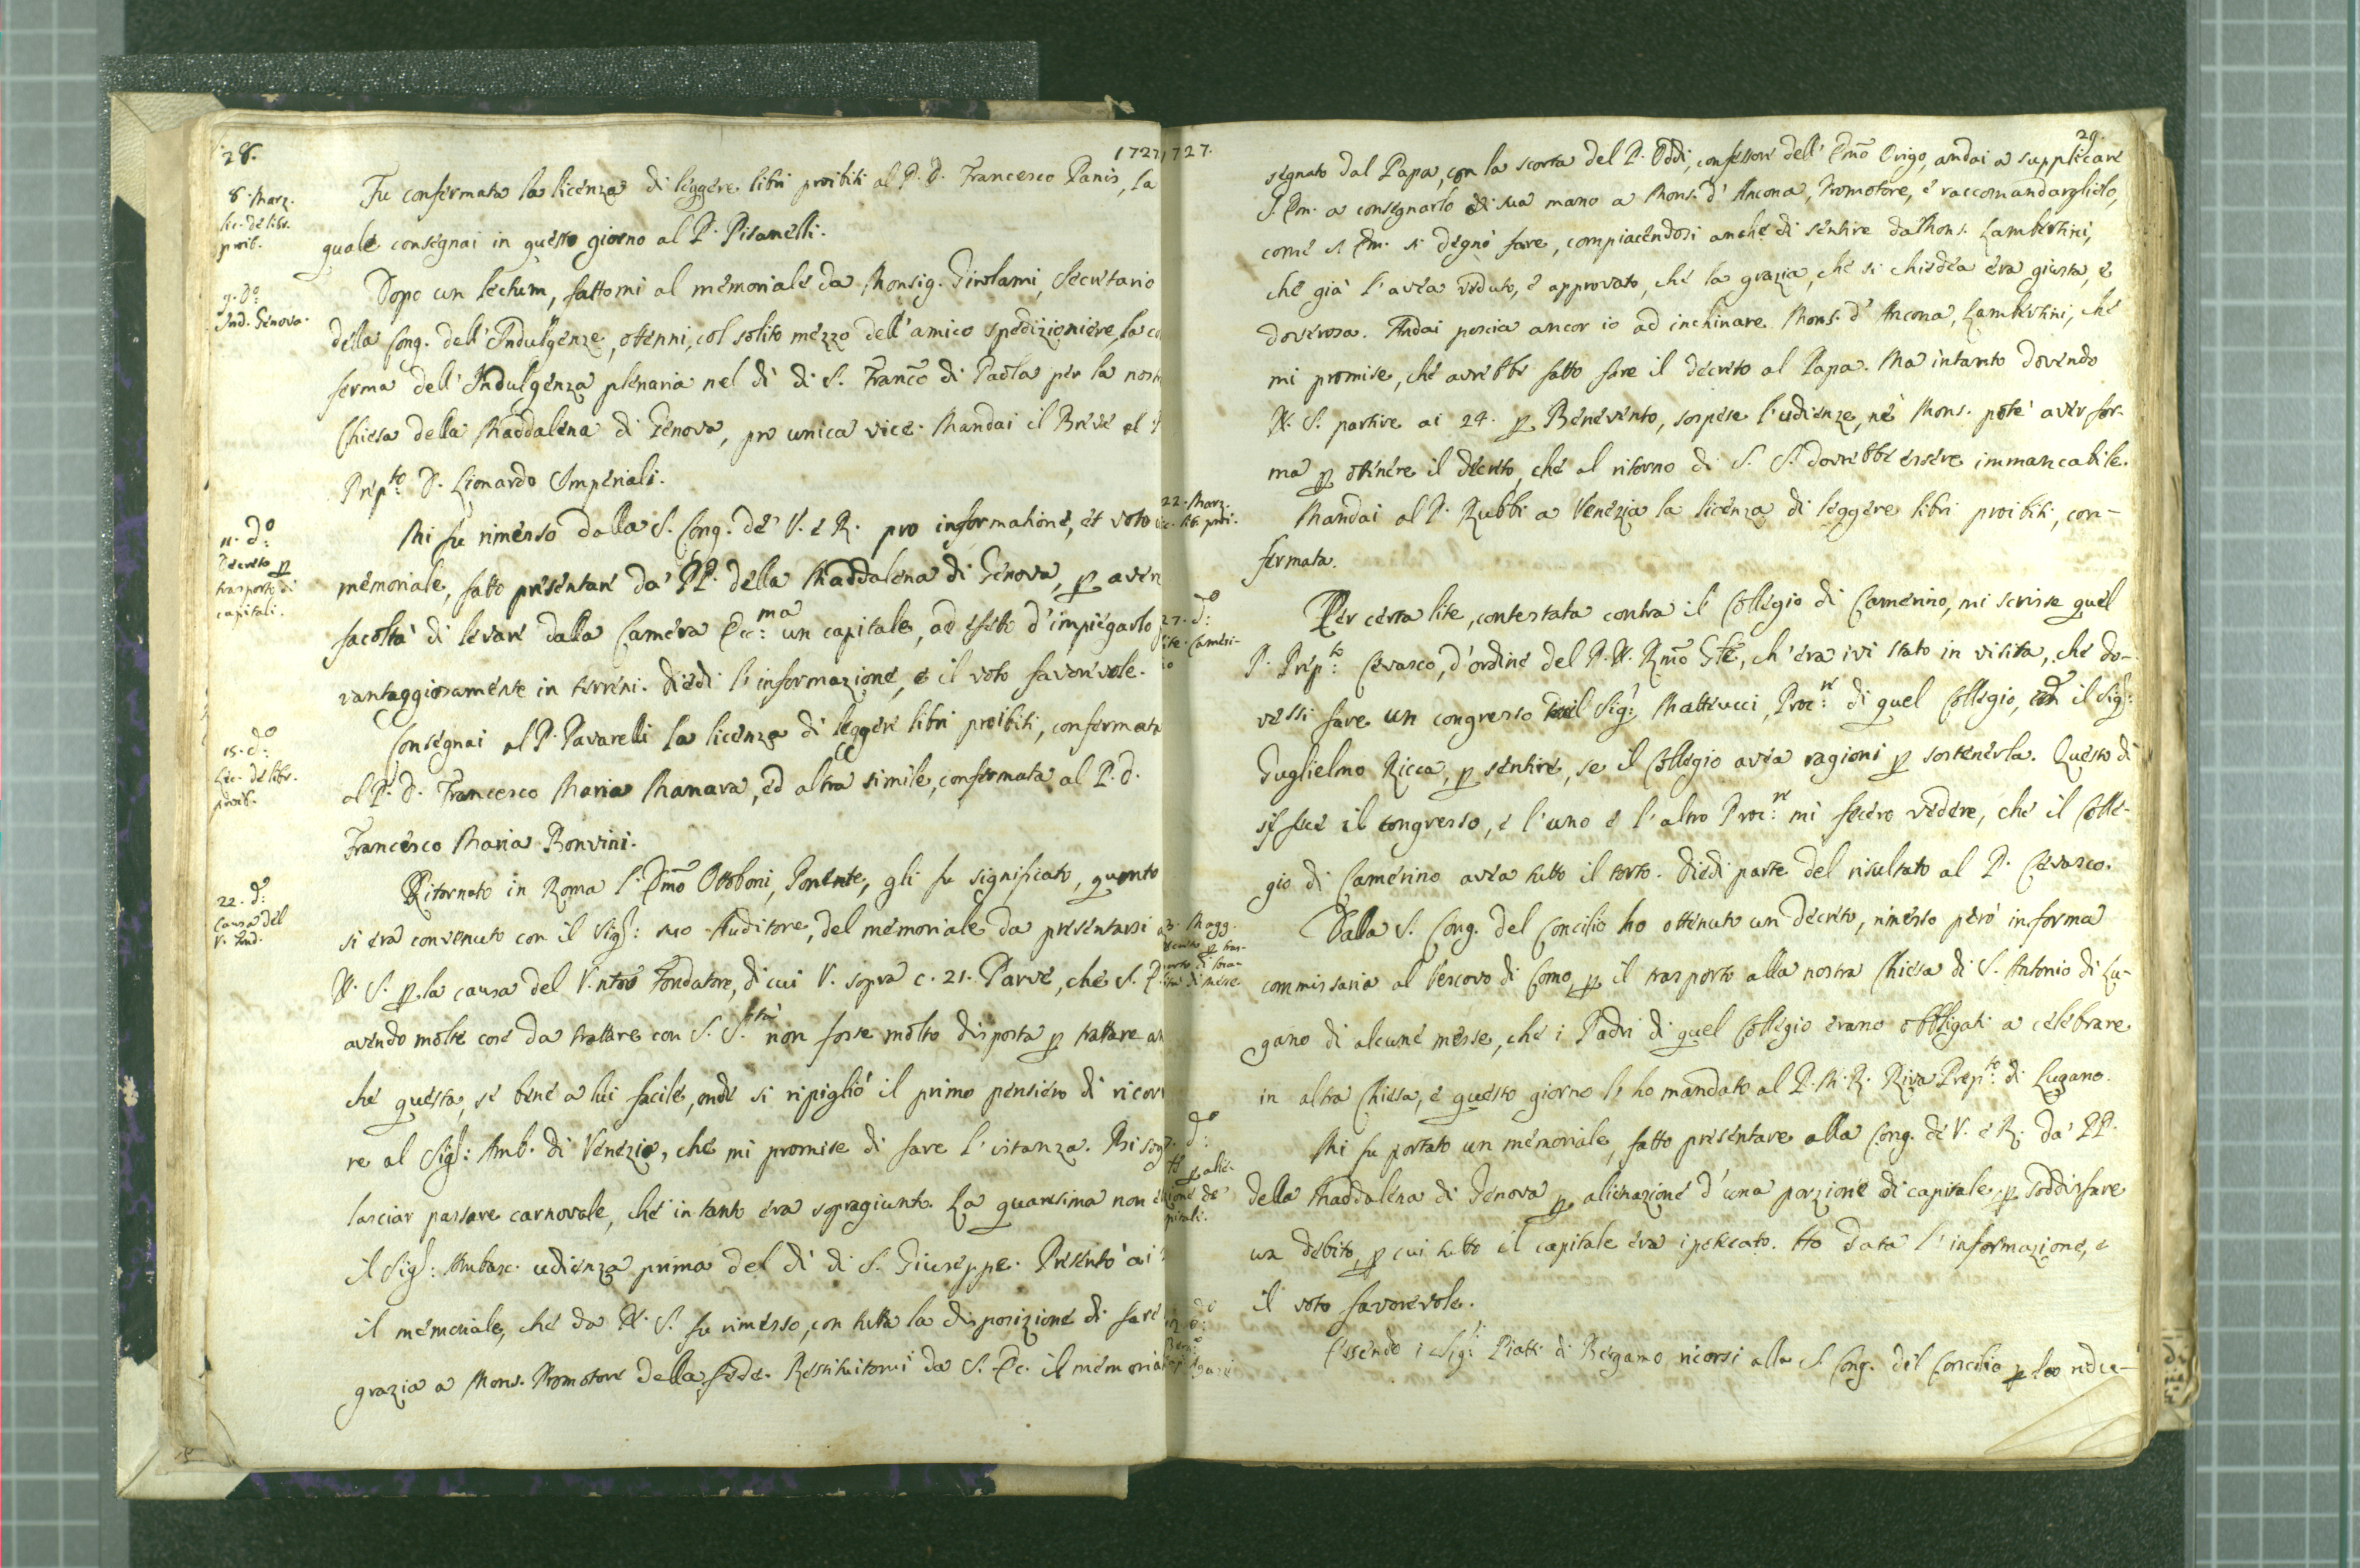 28.
1727
8. Marz.
Lic. de libr.
proib.
Fu confermata la licenza di leggere libri proibiti al P. D. Francesco Panis, la
quale consegnai in questo giorno al P. Pisanelli.
9. do:
Ind. Genova.
Dopo un lectum, fattomi al memoriale da Monsig. Girolami, Secretario
della Cong. dell'Indulgenze, ottenni, col solito mezzo dell'amico spedizioniere, la co
ferma dell'Indulgenza plenaria nel dì di S. Franco di Paola per la nost
Chiesa della Maddalena di Genova, pro unica vice. Mandai il Breve al
Prepto: D. Lionardo Imperiali.
11. do:
Decreto p
trasporto di
capitali.
Mi fu rimesso dalla S. Cong. de' V. e R. pro informatione, et voto
memoriale, fatto presentare da' PP. della Maddalena di Genova, p aver
facoltà di levare dalla Camera Ecc:ma un capitale, ad effetto d'impiegarlo
vantaggiosamente in terreni. Diedi l'informazione, e il voto favorevole.
15. do:
Lic. de libr.
proib.
Consegnai al P. Pavarelli la licenza di leggere libri proibiti, confermata
al P. D. Francesco Maria Manara, ed altra simile, confermata al P. D.
Francesco Maria Bonvini.
22. do:
Causa del
V. Fnd.
Ritornato in Roma l'Emo Ottoboni, Ponente, gli fu significato, quanto
si era convenuto con il Sigr: suo Auditore, del memoriale da presentarsi a
N. S. p la causa del V. ntro Fondatore, di cui V. sopra c. 21. Parve, che S. E.
avendo molte cose da trattare con S. Sntà non fosse molto disposta p trattare an
che questa, se bene a lui facile, onde si ripigliò il primo pensiero di ricor
re al Sigr: Amb. di Venezia, che mi promise di fare l'istanza. Bisog
lasciar passare carnovale, che in tanto era sopragiunto. La quaresima non e
il Sigr: Ambasc. udienza prima del dì di S. Giuseppe. Presentò ai
il memoriale, che da N. S. fu rimesso, con tutta la disposizione di fare
grazia a Mons. Promotore della fede. Restituitomi da S. Ec. il memoria
1727.
29.
segnato dal Papa, con la scorta del P. Oddi, confessore dell'Emo Origo, andai a supplicare
S. Em. a consegnarlo di sua mano a Mons. d'Ancona, Promotore, e raccomandarglielo,
come S. Em. si degnò fare, compiacendosi anche di sentire da Mons. Lambertini,
che già l'avea veduto, e approvato, che la grazia, che si chiedea era giusta, e
doverosa. Andai poscia ancor io ad inchinare Mons. d'Ancona, Lambertini, che
mi promise, che avrebbe fatto fare il decreto al Papa. Ma intanto dovendo
N. S. partire ai 24. p Benevento, sospese l'udienze, nè Mons. potè aver for-
ma p ottenere il decreto, che al ritorno di S. S. dovrebbe essere immancabile.
22. Marz.
lic. lib. proi.
Mandai al P. Rubbi a Venezia la licenza di leggere libri proibiti, con-
fermata.
27. do:
lite. Cameri-
no
Per certa lite, contestata contra il Collegio di Camerino, mi scrisse quel
P. Prepto: Cevasco, d'ordine del P. N. Rmo Gle, ch'era ivi stato in visita, che do-
vessi fare un congresso Sigr: Matteucci, Procre: di quel Collegio, il Sigr:
Guglielmo Ricca, p sentire, se il Collegio avea ragioni p sostenerla. Questo dì
si fece il congresso, e l'uno e l'altro Procre: mi fecero vedere, che il Colle-
gio di Camerino avea tutto il torto. Diedi parte del risultato al P. Cevasco.
3. Magg.
Dalla S. Cong. del Concilio ho ottenuto un decreto, rimesso però in forma
commissaria al Vescovo di Como, p il trasporto alla nostra Chiesa di S. Antonio di Lu-
gano di alcune messe, che i Padri di quel Collegio erano obbligati a celebrare
in altra Chiesa, e questo giorno l'ho mandato al P. M. R. Riva Prepto: di Lugano.
do:
p alie-
zione de'
pitali.
Mi fu portato un memoriale, fatto presentare alla Cong. de' V. e R. da' PP.
della Maddalena di Genova p alienazione d'una porzione di capitale, p soddisfare
un debito, p cui tutto il capitale era ipotecato. Ho data l'informazione, e
il voto favorevole.
Essendo i Sigri: Piatti di Bergamo ricorsi alla S. Cong. del Concilio p la redu-